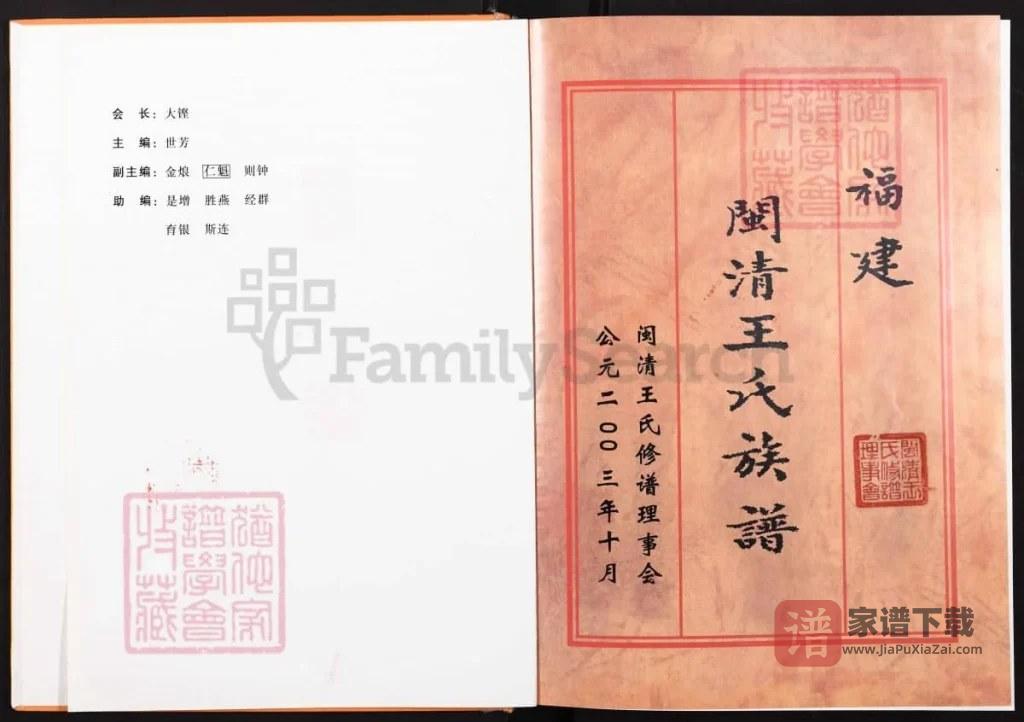 会 长：大铿
主 编：世芳
副主编：金烺 仁魁 则钟
助 编：是增 胜燕 经群
育银 斯连
收藏
譜學會
FamilySearch
福建
閩清王氏族譜
闽清王氏修谱理事会
公元二〇〇三年十月
閩清王
氏修譜
理事會
谱
家谱下载
www.JiaPuXiaZai.com